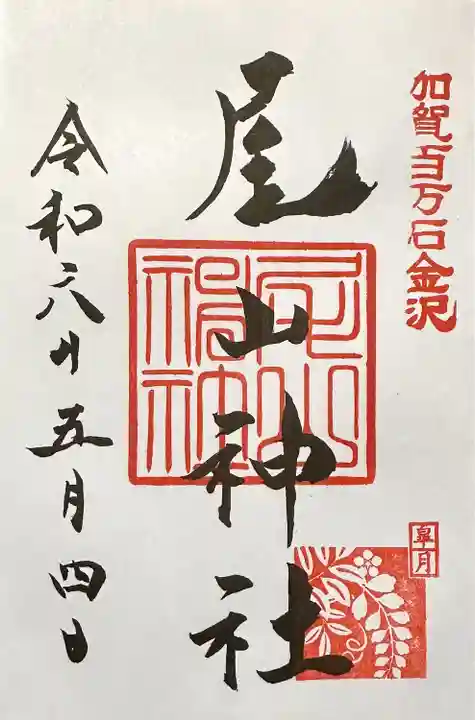 加賀百万石金沢
皐月
尾山神社
令和六年五月四日